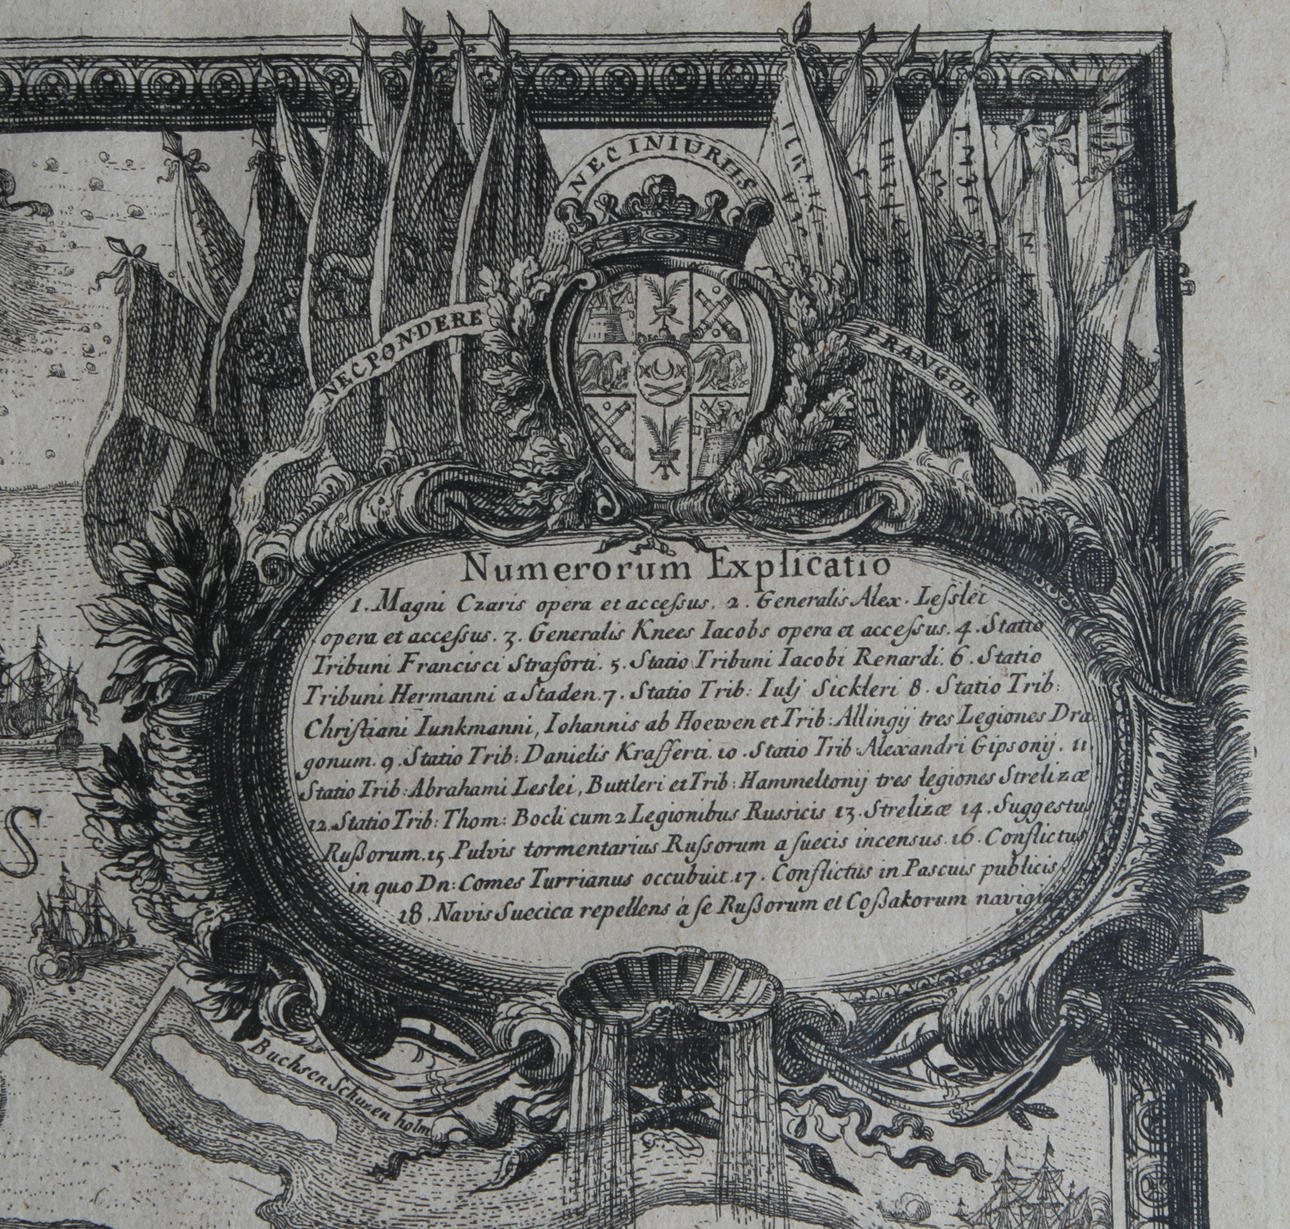 NEC INIURIIS
NEC PONDERE
FRANGOR
Numerorum Explicatio
1. Magni Czaris opera et accessus. 2. Generalis Alex. Leſslei
opera et acceſsus. 3. Generalis Knees Iacobs opera et acceſsus. 4. Statio
Tribuni Francisci Straforti. 5. Statio Tribuni Iacobi Renardi. 6. Statio
Tribuni Hermanni a Staden. 7. Statio Trib: Iulj Sickleri 8. Statio Trib:
Chriſtiani Iunkmanni, Iohannis ab Hoewen et Trib: Allingij tres Legiones Dra
gonum. 9. Statio Trib: Danielis Krafferti. 10. Statio Trib: Alexandri Gipsonij. 11.
Statio Trib: Abrahami Leslei, Buttleri et Trib: Hammeltonij tres legiones Strelizæ
12. Statio Trib: Thom: Bocli cum 2 Legionibus Russicis 13. Strelizæ 14. Suggestus
Rußorum. 15 Pulvis tormentarius Ruſsorum a ſuecis incensus. 16. Conflictus
in quo Dn: Comes Turrianus occubuit. 17. Conflictus in Pascuis publicis
18. Navis Suecica repellens à ſe Rußorum et Coßakorum navigia
S
Buchsen Schuzen holm